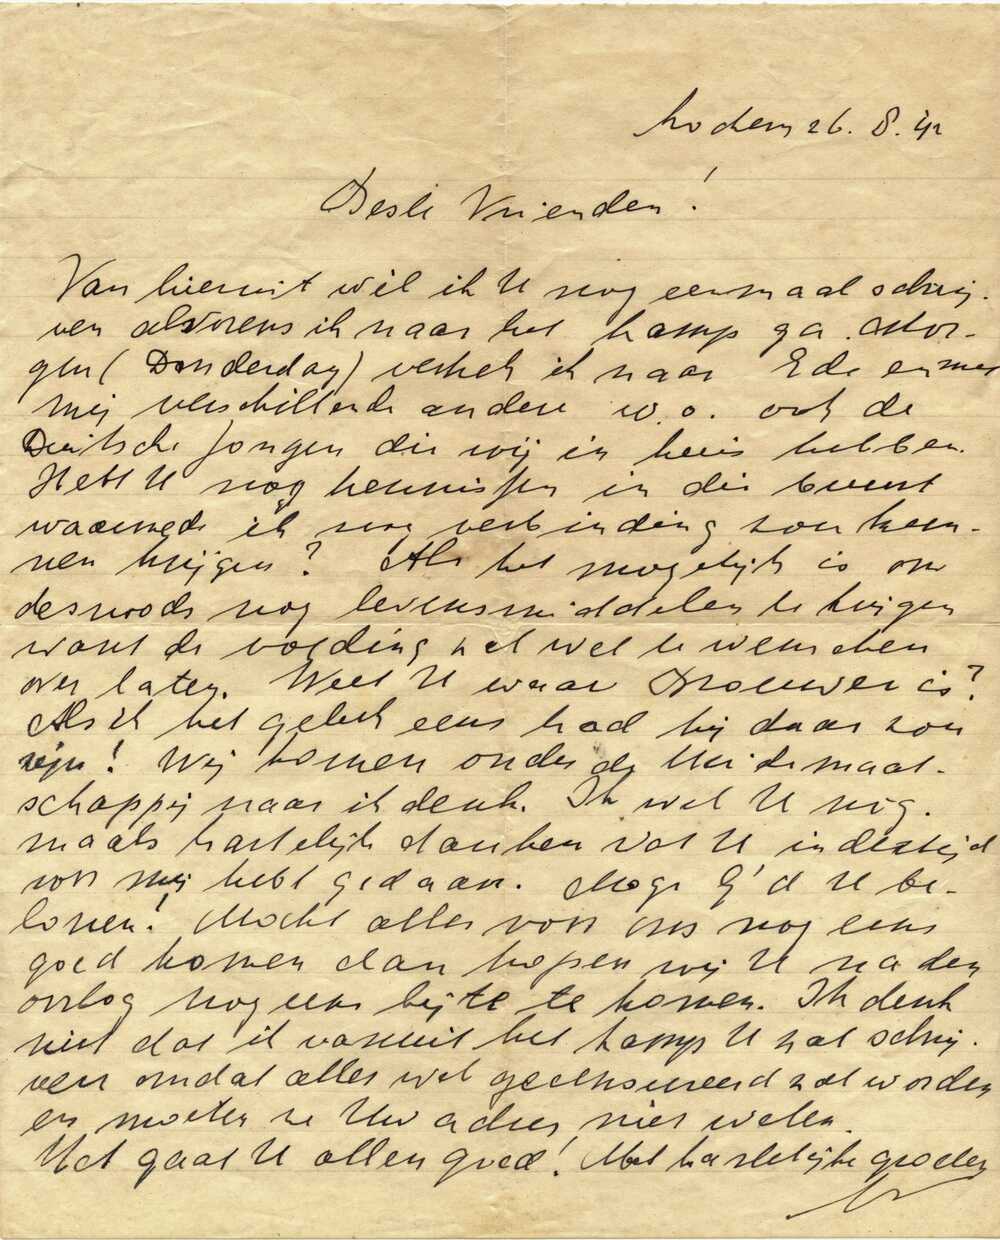 Lochem 26. 8. 42
Beste Vrienden!
Van hieruit wil ik U nog eenmaal schrij-
ven alvorens ik naar het kamp ga. Mor-
gen (Donderdag) vertrek ik naar Ede en met
mij verschillende andere w.o. ook de
Duitsche Jongen die wij in huis hebben.
Hebt U nog kennissen in die buurt
waarmede ik nog verbinding zou kun-
nen krijgen? Als het mogelijk is om
desnoods nog levensmiddelen te krijgen
want de voeding zal wel te wenschen
over laten. Weet U waar Brouwer is?
Als ik het geluk eens had bij daar zou
zijn! Wij komen onder de Heidemaat-
schappij naar ik denk. Ik wil U nog-
maals hartelijk danken wat U indertijd
voor mij hebt gedaan. Moge G'd U be-
lonen! Mocht alles voor ons nog eens
goed komen dan hopen wij U na den
oorlog nog eens bij te te komen. Ik denk
niet dat ik vanuit het kamp U zal schrij-
ven omdat alles wel gecensureerd zal worden
en moeten ze Uw adres niet weten.
Het gaat U allen goed! Met hartelijke groeten